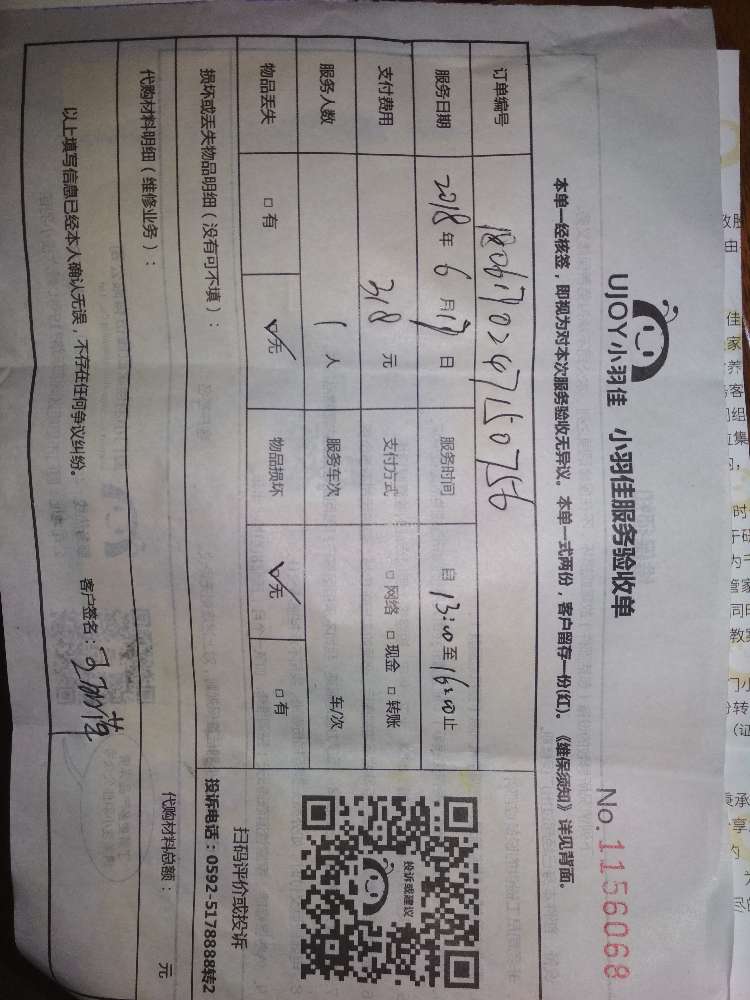 UJOY小羽佳 小羽佳服务验收单
No. 1156068
本单一经核签，即视为对本次服务验收无异议。本单一式两份，客户留存一份(红)。《维保须知》详见背面。
订单编号
服务日期 2018年6月17日 服务时间 自13:00至16:00止
支付费用 318元 支付方式 □网络 □现金 □转账
服务人数 1人 服务车次 车/次
物品丢失 □有 ☑无 物品损坏 ☑无 □有
损坏或丢失物品明细（没有可不填）：
代购材料明细（维修业务）：
代购材料总额： 元
以上填写信息已经本人确认无误，不存在任何争议纠纷。
客户签名：
投诉或建议
扫码评价或投诉
投诉电话：0592-5178888转2